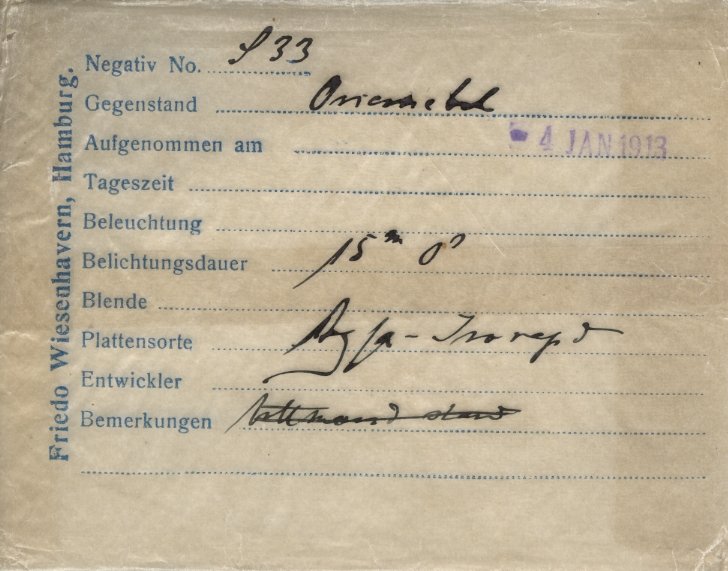 Friedo Wiesenhavern, Hamburg.
Negativ No. S 33
Gegenstand Orionnebel
Aufgenommen am 4 JAN 1913
Tageszeit
Beleuchtung
Belichtungsdauer 15m 0s
Blende
Plattensorte Agfa-Isorapid
Entwickler
Bemerkungen